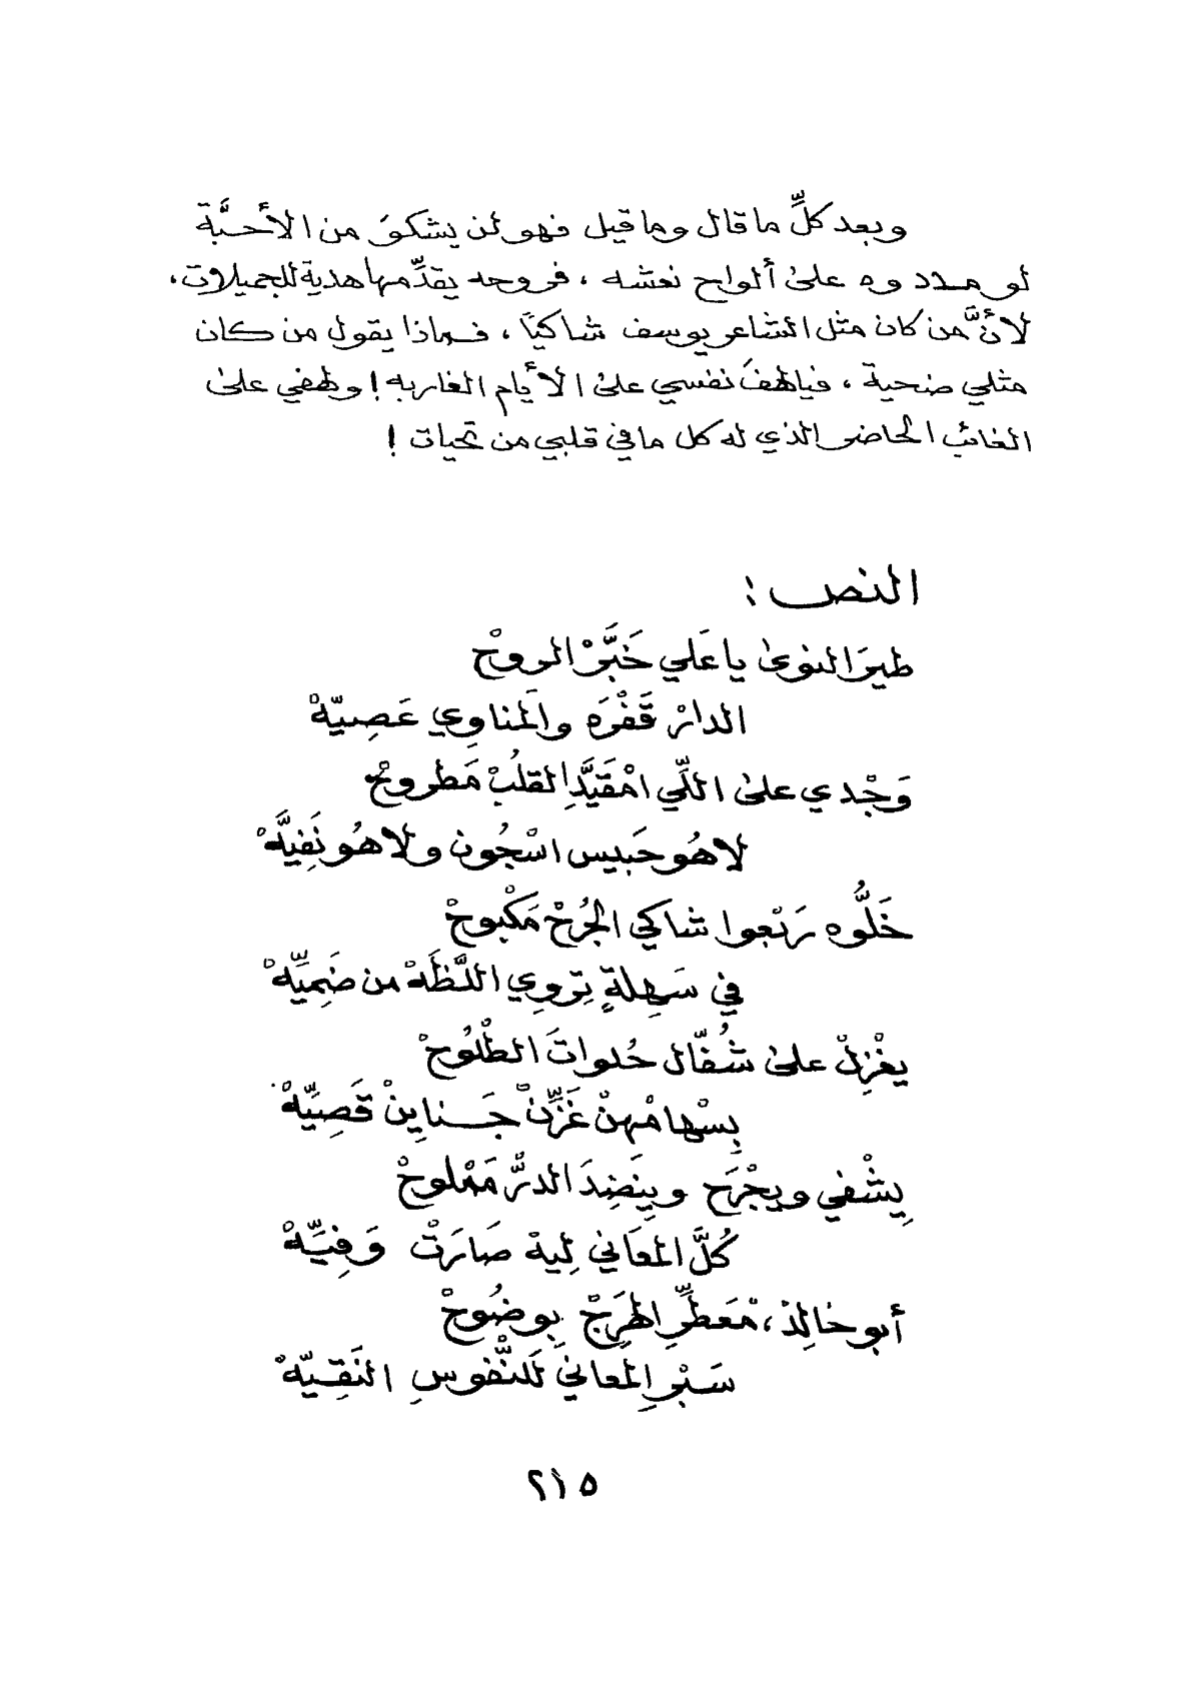 وبعد كلِّ ما قال وما قيل فهو لن يشكوَ من الأحبَّة
لو مددوه على ألواح نعشه ، فروحه يقدِّمها هدية للجميلات ،
لأنَّ من كان مثل الشاعر يوسف شاكياً ، فماذا يقول من كان
مثلي ضحية ، فيالهفَ نفسي على الأيام الغاربه ! ولهفي على
الغائب الحاضر الذي له كل ما في قلبي من تحيات !
النص :
طيرَ النوى يا عَلي خَبَّرْ الروحْ
الدارْ قَفْرَه والَمناوِي عَصِيّهْ
وَجْدي على اللّي امْقَيَّدِ القلُبْ مَطروحْ
لا هُو حَبيس اسْجُون ولا هُو نَفِيَّهْ
خَلُّوه رَبْعوا شاكي الجُرحْ مَكْبوحْ
في سَهِلةٍ تِروِي اللَّظَهْ من ضَمِيِّهْ
يغْزِلْ على شُفّال حُلواتَ الطْلُوحْ
بِسْهامْهنْ غَزِّنْ جَنايِنْ قَصِيِّهْ
يِشْفي ويِجْرَح وبِنَضِدَ الدرّْ مَمْلوحْ
كُلَّ المعَاني لِيهْ صَارَتْ وَفِيِّهْ
أبو خالِدْ، مْعَطِّرِ الهَرَجْ بِوضُوحْ
سَبْرِ المعاني لَلنُّفوسِ النَقِيّهْ
٢١٥